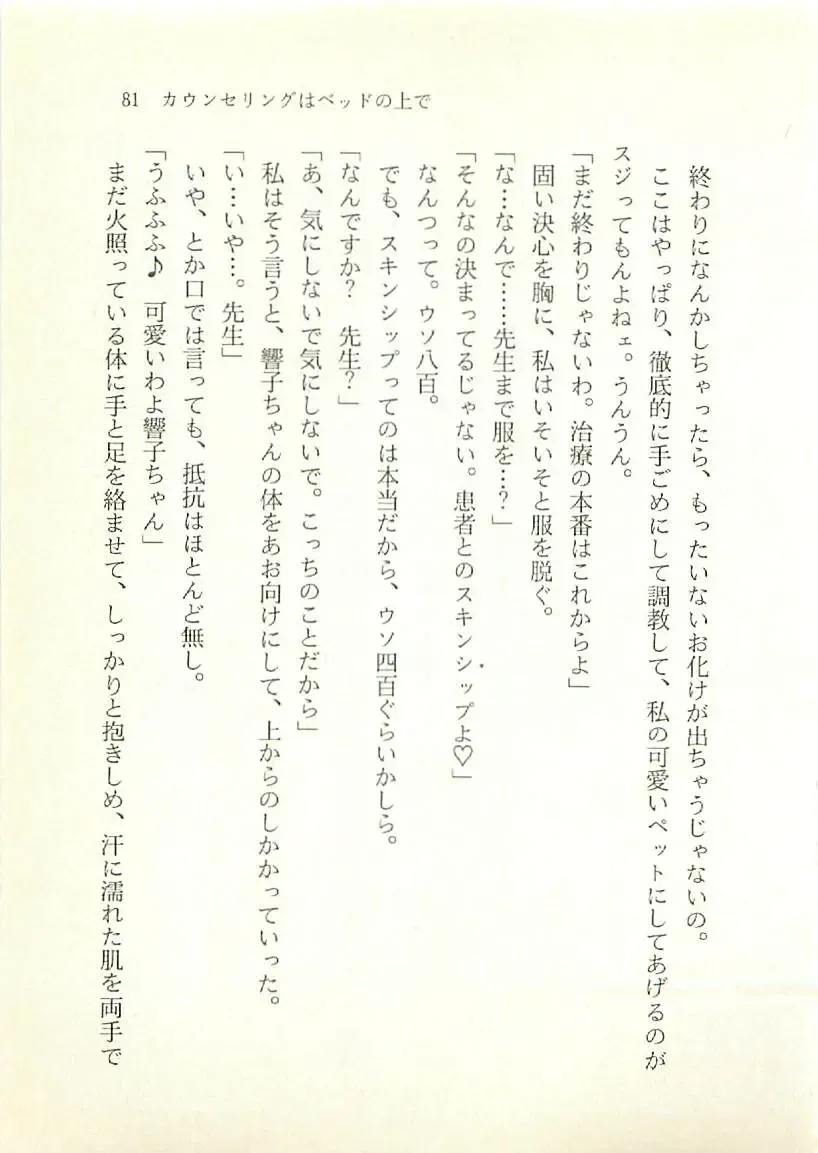 81 カウンセリングはベッドの上で
終わりになんかしちゃったら、もったいないお化けが出ちゃうじゃないの。
ここはやっぱり、徹底的に手ごめにして調教して、私の可愛いペットにしてあげるのが
スジってもんよねェ。うんうん。
「まだ終わりじゃないわ。治療の本番はこれからよ」
固い決心を胸に、私はいそいそと服を脱ぐ。
「な…なんで……先生まで服を…?」
「そんなの決まってるじゃない。患者とのスキンシップよ♡」
なんつって。ウソ八百。
でも、スキンシップってのは本当だから、ウソ四百ぐらいかしら。
「なんですか? 先生?」
「あ、気にしないで気にしないで。こっちのことだから」
私はそう言うと、響子ちゃんの体をあお向けにして、上からのしかかっていった。
「い…いや…。先生」
いや、とか口では言っても、抵抗はほとんど無し。
「うふふふ♪ 可愛いわよ響子ちゃん」
まだ火照っている体に手と足を絡ませて、しっかりと抱きしめ、汗に濡れた肌を両手で